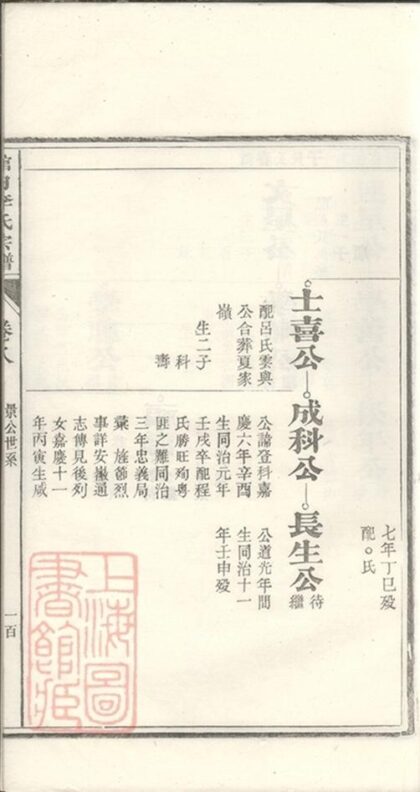 七年丁巳殁
配○氏
士喜公—成科公—長生公 待繼
配呂氏雲與
公合葬夏家
嶺
生二子
科
壽
公諱登科嘉
慶六年辛酉
生同治元年
壬戌卒配程
氏勝旺殉粤
匪之難同治
三年忠義局
彙旌節烈
事詳安徽通
志傳見後列
女嘉慶十一
年丙寅生咸
公道光年間
生同治十一
年壬申殁
李氏宗譜
卷八
景公世系
一百
上海圖
書館藏